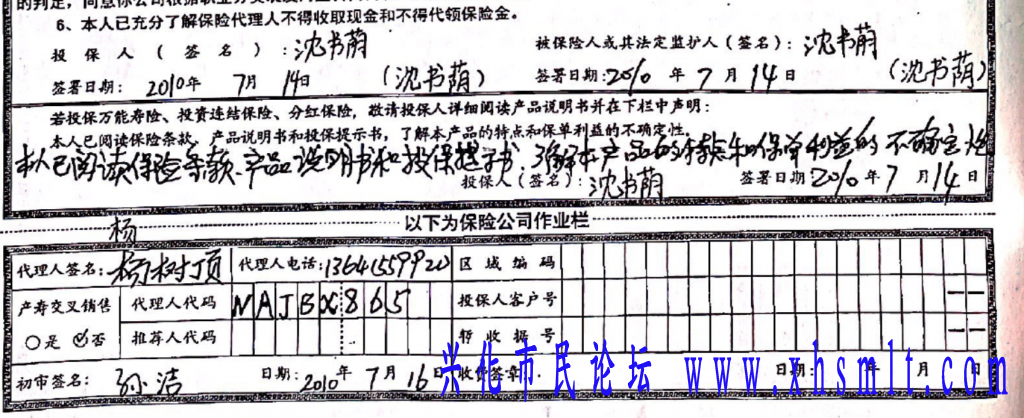 的判定，同意你公司根据职业分类表
6、本人已充分了解保险代理人不得收取现金和不得代领保险金。
投保人（签名）：沈书荫 被保险人或其法定监护人（签名）：沈书荫
签署日期：2010年7月14日（沈书荫） 签署日期：2010年7月14日（沈书荫）
若投保万能寿险、投资连结保险、分红保险，敬请投保人详细阅读产品说明书并在下栏中声明：
本人已阅读保险条款、产品说明书和投保提示书，了解本产品的特点和保单利益的不确定性。
本人已阅读保险条款、产品说明书和投保提示书，了解本产品的特点和保单利益的不确定性
投保人（签名）：沈书荫 签署日期2010年7月14日
以下为保险公司作业栏
杨
代理人签名：杨树顶 代理人电话：区域编码
产寿交叉销售 代理人代码 NAJBX865 投保人客户号 — —
○是 ○否 推荐人代码 暂收据号 — —
初审签名：孙洁 日期：2010年7月16日 收费签章： 日期： 年 月 日
兴化市民论坛 www.xhsmlt.com